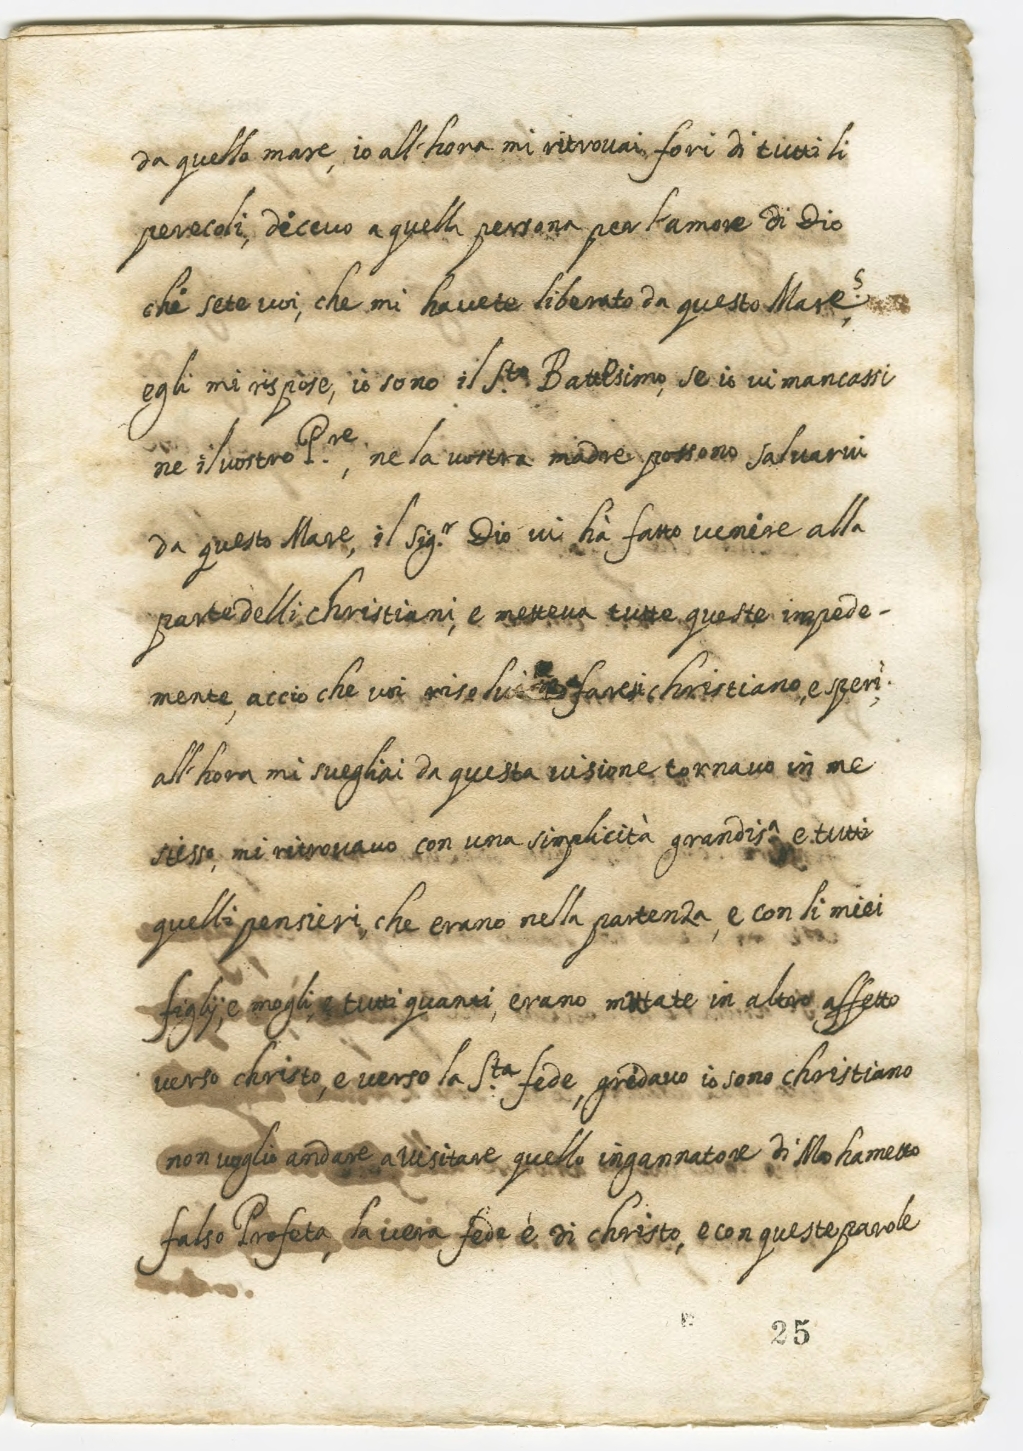 da quello mare, io all'hora mi ritrouai fori di tutti li
perecoli, diceuo a quella persona per l'amore di Dio
chi sete uoi, che mi hauete liberato da questo Mare?
egli mi rispose, io sono il S.to Battesimo, se io ui mancassi
ne il uostro P.re, ne la uostra madre possono saluarui
da questo Mare, il Sig.r Dio ui hà fatto uenire alla
parte delli christiani, e metteua tutte queste impede-
mente, accio che uoi farsi christiano, e sperì.
all'hora mi suegliai da questa uisione tornauo in me
stesso, mi ritrouauo con una simplicità grandis.a e tutti
quelli pensieri, che erano nella partenza, e con li miei
figlij, e mogli, e tutti quanti, erano mutate in altro affetto
uerso christo, e uerso la S.ta fede, gredauo io sono christiano
non uoglio andare a uisitare quello ingannatore di Mohametto
falso Profeta, la uera fede è di christo, e con queste parole
25